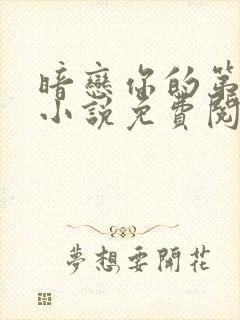 暗戀你的第
小說免費閱
夢想要開花